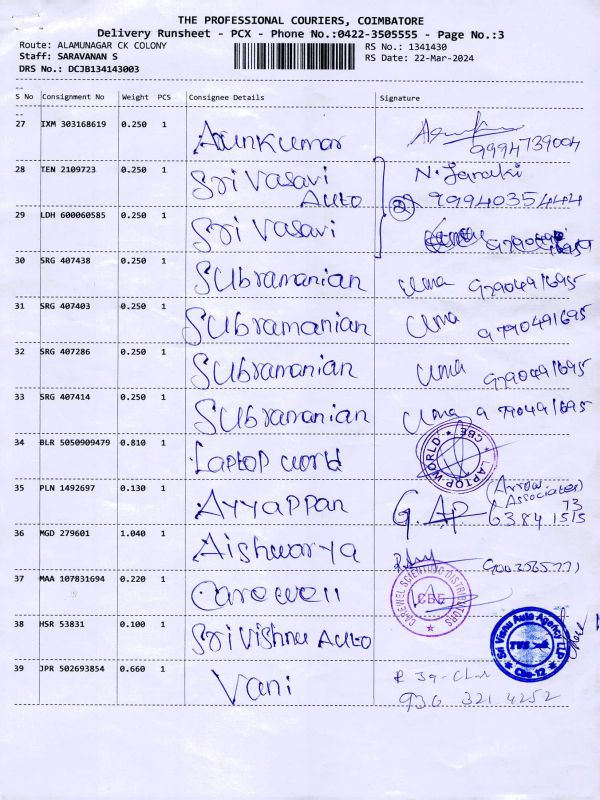 THE PROFESSIONAL COURIERS, COIMBATORE
Delivery Runsheet - PCX - Phone No.:0422-3505555 - Page No.:3
Route: ALAMUNAGAR CK COLONY RS No.: 1341430
Staff: SARAVANAN S RS Date: 22-Mar-2024
DRS No.: DCJB134143003
S No Consignment No Weight PCS Consignee Details Signature
27 IXM 303168619 0.250 1 Arunkumar 9994739004
28 TEN 2109723 0.250 1 Sri Vasavi Auto N. Janaki
2 9994035444
29 LDH 600060585 0.250 1 Sri Vasavi
30 SRG 407438 0.250 1 Subramanian Uma 9790491695
31 SRG 407403 0.250 1 Subramanian Uma 9790491695
32 SRG 407286 0.250 1 Subramanian Uma 9790491695
33 SRG 407414 0.250 1 Subramanian Uma 9790491695
34 BLR 5050909479 0.810 1 Laptop world LAPTOP WORLD * CBE *
35 PLN 1492697 0.130 1 Ayyappan G. AP (Arrow Associates)
36 MGD 279601 1.040 1 Aishwarya 9003565771
37 MAA 107831694 0.220 1 Carewell CAREWEL SCIENTIFIC DISTRIBUTORS CBE
38 HSR 53831 0.100 1 Sri Vishnu Auto Sri Vishnu Auto Agency LLP TVS Cbe-12
39 JPR 502693854 0.660 1 Vani
936 321 4252